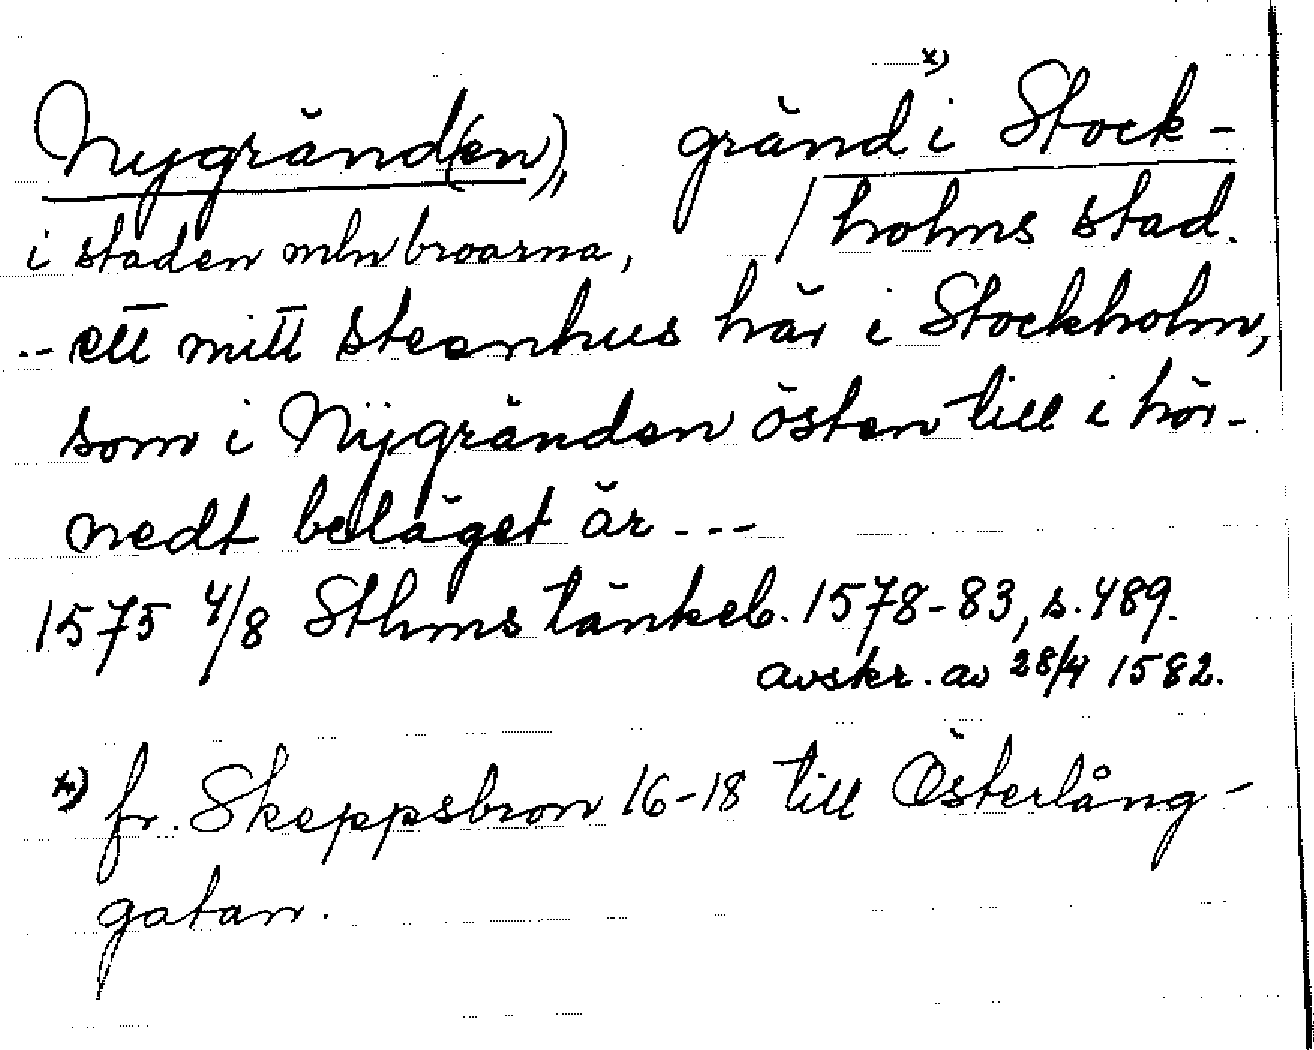 Nygränd(en), gränd x) i Stock-
i staden mln broarna, / holms stad.
-- ett mitt steenhus här i Stockholm,
som i Nÿgränden östen till i hör-
nedt beläget är ---
1575 4/8 Sthms tänkeb. 1578-83, s. 489.
avskr. av 28/4 1582.
x) fr. Skeppsbron 16-18 till Österlång-
gatan.